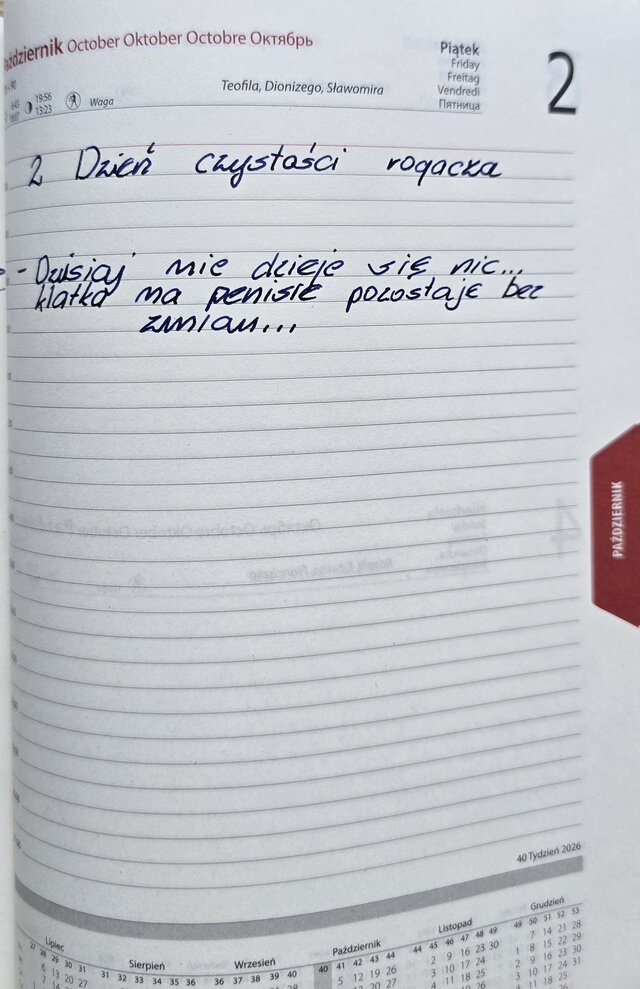 Październik October Oktober Octobre Октябрь
Piątek
Friday
Freitag
Vendredi
Пятница
2
19:56
13:23
Waga
Teofila, Dionizego, Sławomira
2 Dzień czystaści rogacza
- Dzisiaj nie dzieje się nic...
klatka na penisie pozostaje bez
zmian...
PAŹDZIERNIK
40 Tydzień 2026
Lipiec
27 28 29 30 31
6 13 20 27
Sierpień
31 32 33 34 35 36
Wrzesień
36 37 38 39 40
Październik
40 41 42 43 44
5 12 19 26
Listopad
44 45 46 47 48 49
2 9 16 23 30
3 10 17 24
4 11 18 25
Grudzień
49 50 51 52 53
7 14 21 28
1 8 15 22 29
2 9 16 23 30
3 10 17 24 31
4 11 18 25